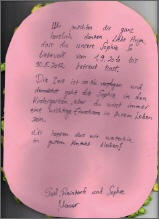 Wir möchten dir ganz
herzlich danken, liebe Anja,
dass du unsere Sophie so
liebevoll vom 1.9.2010 bis
30.8.2012 betreut hast.
Die Zeit ist so schnell vergangen und
demnächst geht die Sophie in den
Kindergarten, aber du wirst immer
eine wichtige Person in ihrem Leben
sein.
Wir hoffen dass wir weiterhin
in gutem Kontakt bleiben!
und Sophie